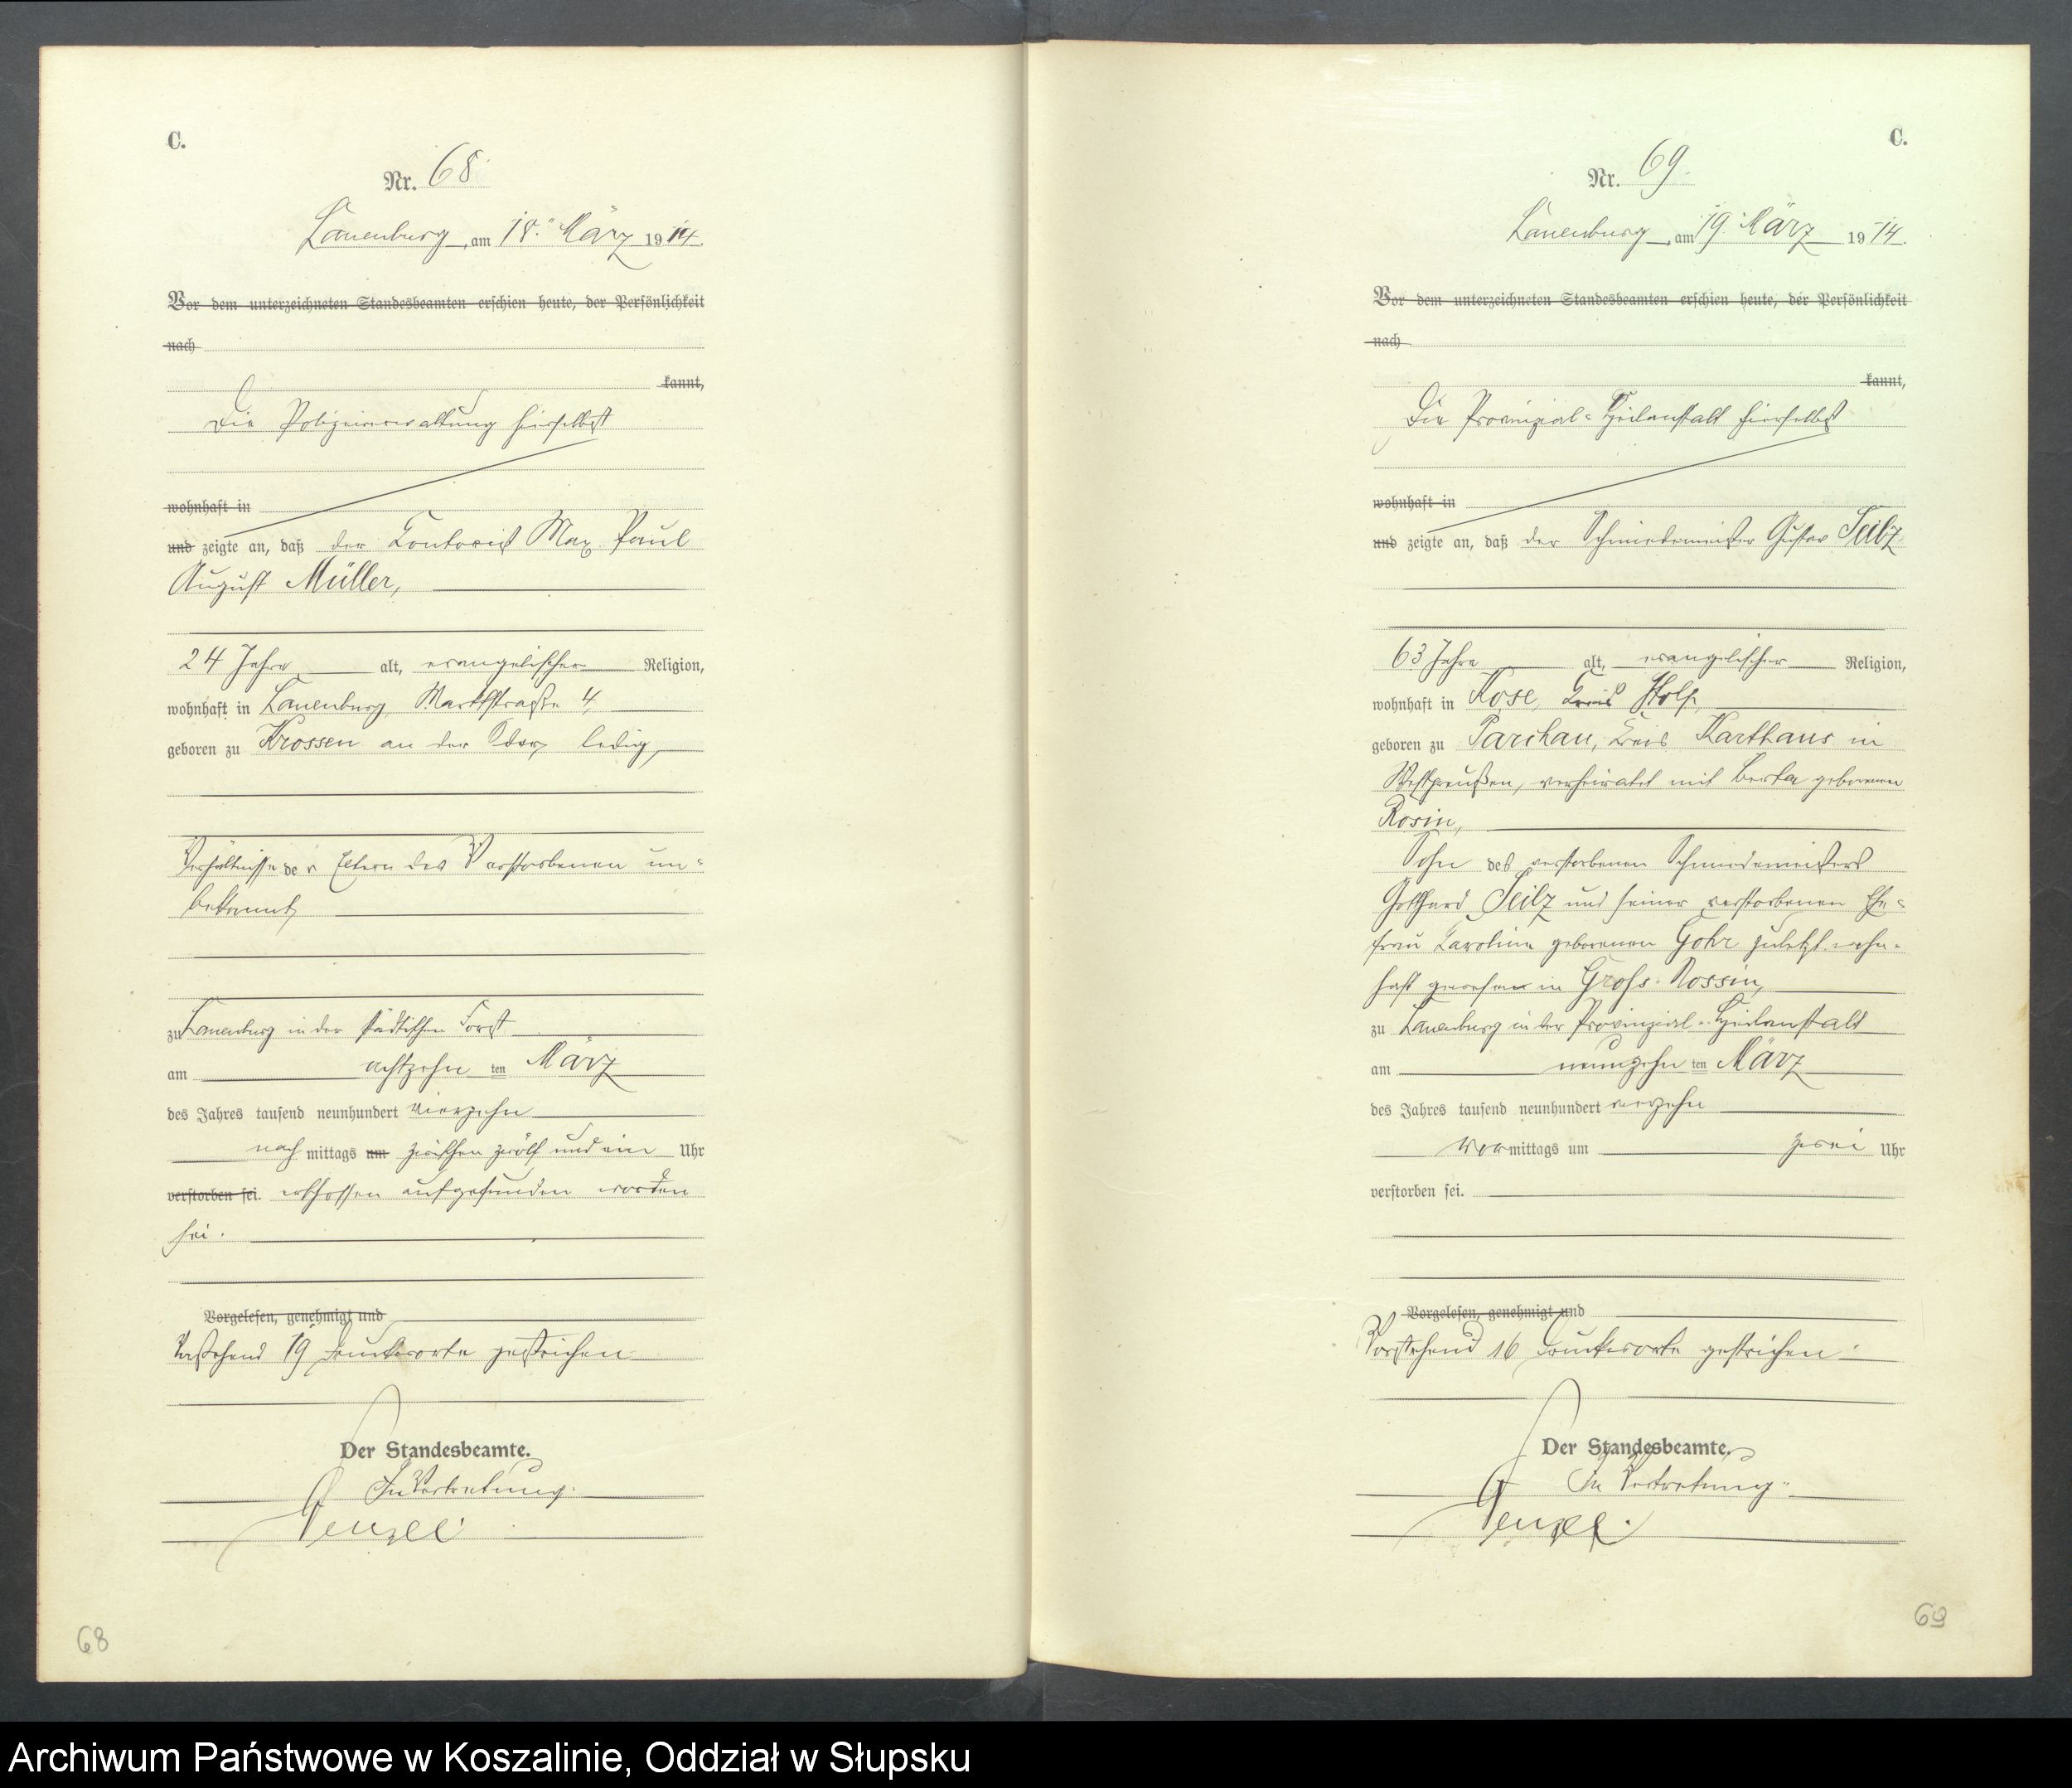 C.
Nr. 68
Lauenburg, am 18. März 1914.
Vor dem unterzeichneten Standesbeamten erschien heute, der Persönlichkeit
nach
kannt,
Die Polizeiverwaltung hierselbst
wohnhaft in
und zeigte an, daß der Kontorist Max Paul
August Müller,
24 Jahre alt, evangelischer Religion,
wohnhaft in Lauenburg Marktstraße 4,
geboren zu Krossen an der Oder, ledig,
Verhältnisse der Eltern des Verstorbenen un-
bekannt,
zu Lauenburg in der städtischen Forst
am achtzehn ten März
des Jahres tausend neunhundert vierzehn
nach mittags um zwischen zwölf und ein Uhr
verstorben sei. erschossen aufgefunden worden
sei.
Vorgelesen, genehmigt und
Vorstehend 19 Druckworte gestrichen
Der Standesbeamte.
In Vertretung.
68
C.
Nr. 69.
Lauenburg, am 19. März 1914.
Vor dem unterzeichneten Standesbeamten erschien heute, der Persönlichkeit
nach
kannt,
Die Provinzial-Heilanstalt hierselbst
wohnhaft in
und zeigte an, daß der Schmiedemeister Gustav Seilz
63 Jahre alt, evangelischer Religion,
wohnhaft in Kose, Kreis Stolp,
geboren zu Parchau, Kreis Karthaus in
Westpreußen, verheiratet mit Berta geborenen
Rosin,
Sohn des verstorbenen Schmiedemeisters
Gotthard Seilz und seiner verstorbenen Ehe-
frau Karoline geborenen Gohr zuletzt wohn-
haft gewesen in Gross-Rossin,
zu Lauenburg in der Provinzial-Heilanstalt
am neunzehn ten März
des Jahres tausend neunhundert vierzehn
vor mittags um zwei Uhr
verstorben sei.
Vorgelesen, genehmigt und
Vorstehend 16 Druckworte gestrichen.
Der Standesbeamte.
In Vertretung.
69
Archiwum Państwowe w Koszalinie, Oddział w Słupsku